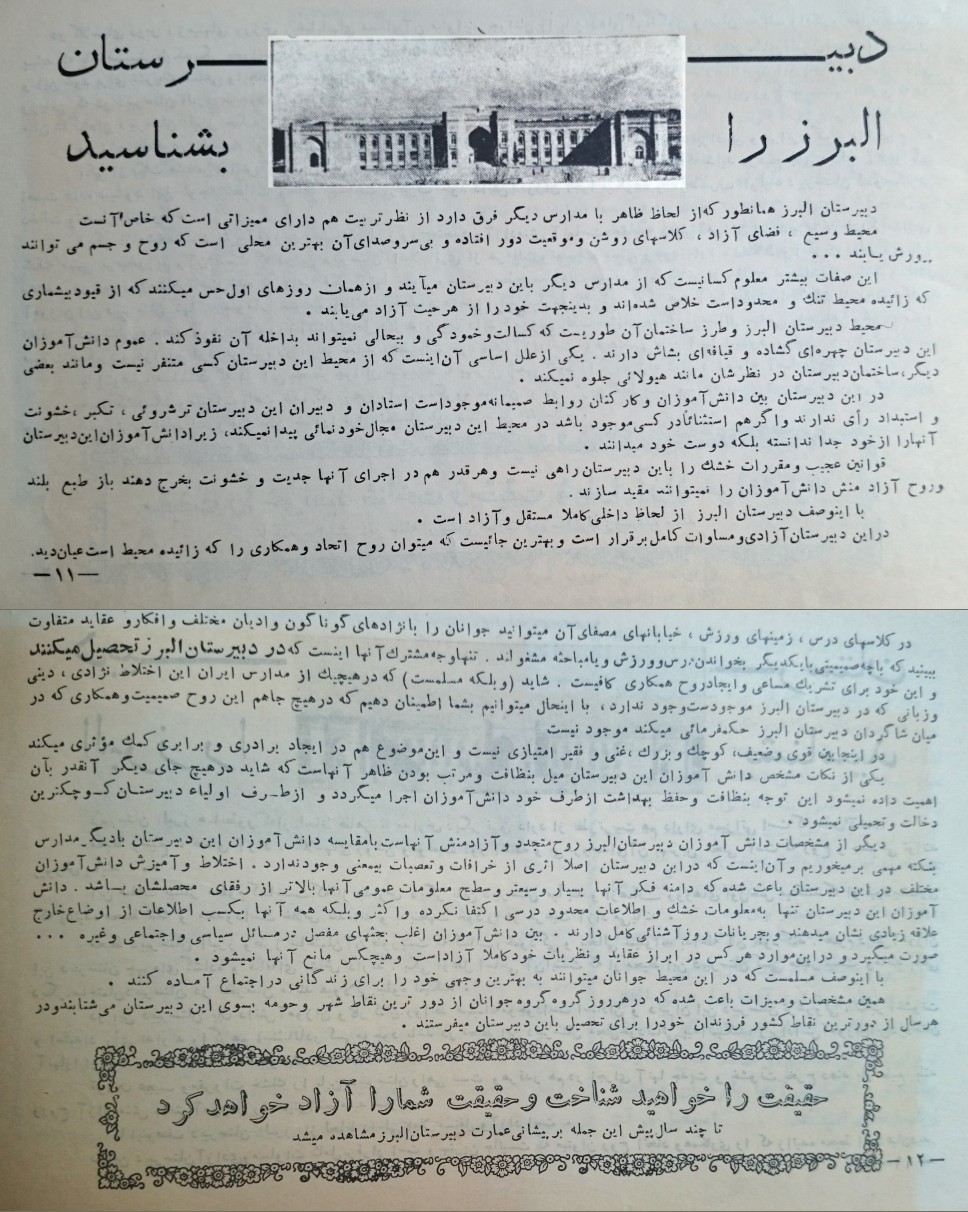 دبیـــرستان
البرز را بشناسید
دبیرستان البرز همانطور که از لحاظ ظاهر با مدارس دیگر فرق دارد از نظر تربیت هم دارای ممیزاتی است که خاص آنست
محیط وسیع ، فضای آزاد ، کلاسهای روشن و موقعیت دور افتاده و بی‌سر و صدای آن بهترین محلی است که روح و جسم می توانند
پرورش یابند ...
این صفات بیشتر معلوم کسانیست که از مدارس دیگر باین دبیرستان میآیند و از همان روزهای اول حس میکنند که از قیود بیشماری
که زائیده محیط تنك و محدود است خلاص شده‌اند و بدینجهت خود را از هر حیث آزاد می‌یابند .
محیط دبیرستان البرز و طرز ساختمان آن طوریست که کسالت و خمودگی و بیحالی نمیتواند بداخله آن نفوذ کند . عموم دانش‌آموزان
این دبیرستان چهره‌ای گشاده و قیافه‌ای بشاش دارند . یکی از علل اساسی آن اینست که از محیط این دبیرستان کسی متنفر نیست و مانند بعضی
دیگر، ساختمان دبیرستان در نظر شان مانند هیولائی جلوه نمیکند .
در این دبیرستان بین دانش‌آموزان و کارکنان روابط صمیمانه موجود است استادان و دبیران این دبیرستان ترشروئی ، تکبر ، خشونت
و استبداد رأی ندارند و اگر هم استثنائاً در کسی موجود باشد در محیط این دبیرستان مجال خودنمائی پیدا نمیکند، زیرا دانش‌آموزان این دبیرستان
آنها را از خود جدا ندانسته بلکه دوست خود میدانند .
قوانین عجیب و مقررات خشك را باین دبیرستان راهی نیست و هر قدر هم در اجرای آنها جدیت و خشونت بخرج دهند باز طبع بلند
و روح آزاد منش دانش‌آموزان را نمیتوانند مقید سازند .
با اینوصف دبیرستان البرز از لحاظ داخلی کاملا مستقل و آزاد است .
در این دبیرستان آزادی و مساوات کامل برقرار است و بهترین جائیست که میتوان روح اتحاد و همکاری را که زائیده محیط است عیان دید.
—۱۱—
در کلاسهای درس ، زمینهای ورزش ، خیابانهای مصفای آن میتوانید جوانان را با نژادهای گوناگون و ادیان مختلف و افکار و عقاید متفاوت
ببینید که باچه صمیمیتی بایکدیگر بخواندن درس و ورزش و یا مباحثه مشغولند . تنها وجه مشترك آنها اینست که در دبیرستان البرز تحصیل میکنند
و این خود برای تشریك مساعی و ایجاد روح همکاری کافیست . شاید (و بلکه مسلمست) که در هیچیك از مدارس ایران این اختلاط نژادی ، دینی
و زبانی که در دبیرستان البرز موجودست وجود ندارد ، با اینحال میتوانیم بشما اطمینان دهیم که در هیچ جا هم این روح صمیمیت و همکاری که در
میان شاگردان دبیرستان البرز حکمفرمائی میکند موجود نیست
در اینجا بین قوی وضعیف، کوچك و بزرك ، غنی و فقیر امتیازی نیست و این موضوع هم در ایجاد برادری و برابری کمك مؤثری میکند
یکی از نکات مشخص دانش آموزان این دبیرستان میل بنظافت و مرتب بودن ظاهر آنهاست که شاید در هیچ جای دیگر آنقدر بآن
اهمیت داده نمیشود این توجه بنظافت و حفظ بهداشت از طرف خود دانش‌آموزان اجرا میگردد و از طرف اولیاء دبیرستان کوچکترین
دخالت و تحمیلی نمیشود .
دیگر از مشخصات دانش آموزان دبیرستان البرز روح متجدد و آزاد منش آنهاست بامقایسه دانش‌آموزان این دبیرستان بادیگر مدارس
بنکته مهمی بر میخوریم و آن اینست که در این دبیرستان اصلا اثری از خرافات و تعصبات بیمعنی وجود ندارد . اختلاط و آمیزش دانش‌آموزان
مختلف در این دبیرستان باعث شده که دامنه فکر آنها بسیار وسیعتر و سطح معلومات عمومی آنها بالاتر از رفقای محصلشان باشد . دانش
آموزان این دبیرستان تنها به معلومات خشك و اطلاعات محدود درسی اکتفا نکرده و اکثر و بلکه همه آنها بکسب اطلاعات از اوضاع خارج
علاقه زیادی نشان میدهند و بجریانات روز آشنائی کامل دارند . بین دانش‌آموزان اغلب بحثهای مفصل در مسائل سیاسی و اجتماعی و غیره ...
صورت میگیرد و در این موارد هر کس در ابراز عقاید و نظریات خود کاملا آزاداست وهیچکس مانع آنها نمیشود .
با اینوصف مسلمست که در این محیط جوانان میتوانند به بهترین وجهی خود را برای زندگانی در اجتماع آماده کنند .
همین مشخصات و ممیزات باعث شده که در هر روز گروه گروه جوانان از دور ترین نقاط شهر و حومه بسوی این دبیرستان می‌شتابند و در
هر سال از دور ترین نقاط کشور فرزندان خود را برای تحصیل باین دبیرستان میفرستند .
حقیقت را خواهید شناخت و حقیقت شما را آزاد خواهد کرد
تا چند سال پیش این جمله بر پیشانی عمارت دبیرستان البرز مشاهده میشد
—۱۲—